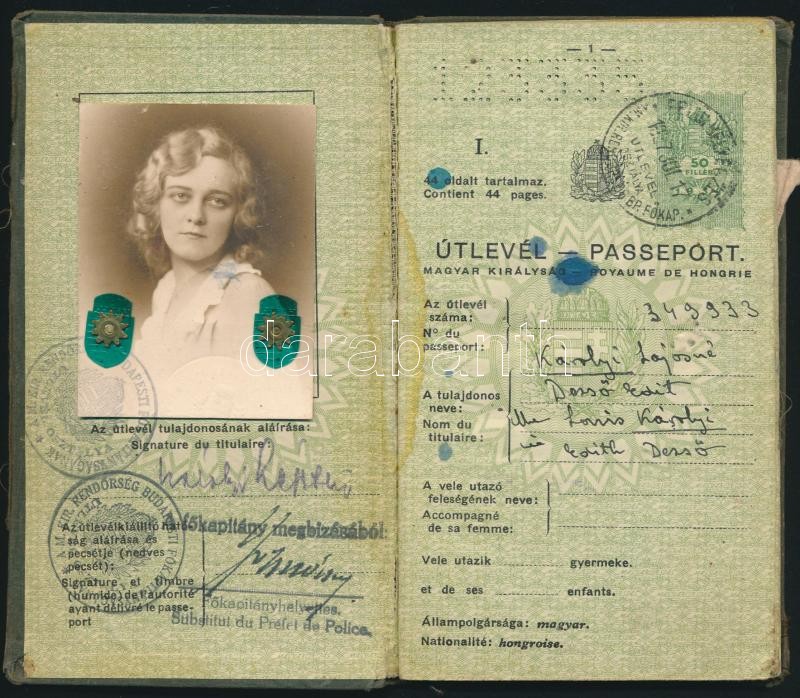 Az útlevél tulajdonosának aláírása:
Signature du titulaire:
Az útlevélkiállító ható-
ság aláírása és
pecsétje (nedves
pecsét):
Signature et timbre
(humide) de l'autorité
ayant délivré le passe-
port
főkapitány megbizásából:
Főkapitányhelyettes.
Substitut du Préfet de Police.
— 1 —
I.
44 oldalt tartalmaz.
Contient 44 pages.
50
FILLÉR
ÚTLEVÉL
BP. FŐKAP.
ÚTLEVÉL — PASSEPORT.
MAGYAR KIRÁLYSÁG — ROYAUME DE HONGRIE
Az útlevél
száma:
Nº du
passeport:
349933
A tulajdonos
neve:
Nom du
titulaire:
Károlyi Lajosné
Dezső Edit
Me Louis Károlyi
née Edith Dezső
A vele utazó
feleségének neve:
Accompagné
de sa femme:
Vele utazik gyermeke.
et de ses enfants.
Állampolgársága: magyar.
Nationalité: hongroise.
darabanth